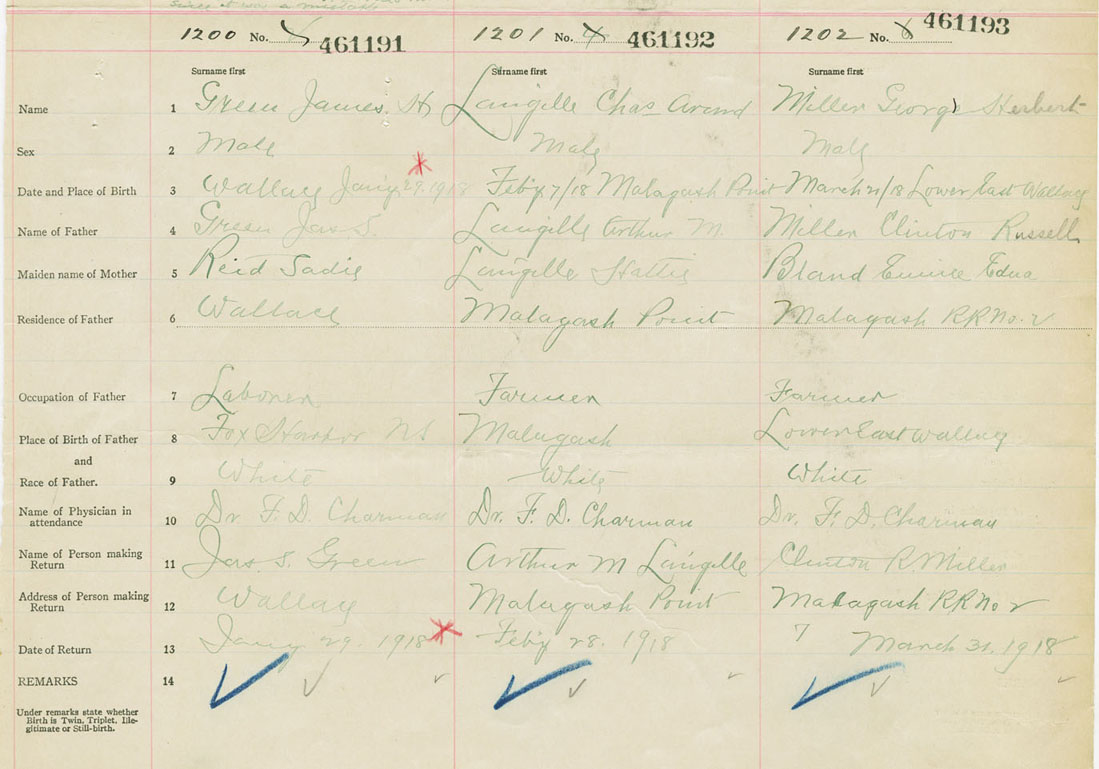 since it was a mistake
1200 No. 5 461191 1201 No. 4 461192 1202 No. 461193
Surname first Surname first Surname first
Name 1 Green James. H. Langille Chas Avard Miller George Herbert
Sex 2 Male Male Male
Date and Place of Birth 3 Wallace Jan'y 29. 1918 Feb'y 7/18 Malagash Point March 21/18 Lower East Wallace
Name of Father 4 Green Jas. S. Langille Arthur M. Miller Clinton Russell
Maiden name of Mother 5 Reid Sadie Langille Hattie Bland Eunice Edna
Residence of Father 6 Wallace Malagash Point Malagash RR No. 2
Occupation of Father 7 Laborer Farmer Farmer
Place of Birth of Father 8 Fox Harbor NS Malagash Lower East Wallace
and
Race of Father. 9 White White White
Name of Physician in
attendance 10 Dr. F. D. Charman Dr. F. D. Charman Dr. F. D. Charman
Name of Person making
Return 11 Jas. S. Green Arthur M Langille Clinton R Miller
Address of Person making
Return 12 Wallace Malagash Point Malagash RR No 2
Date of Return 13 Jany 29. 1918 Feb'y 28. 1918 7 March 31. 1918
REMARKS 14
Under remarks state whether
Birth is Twin, Triplet, Ille-
gitimate or Still-birth.